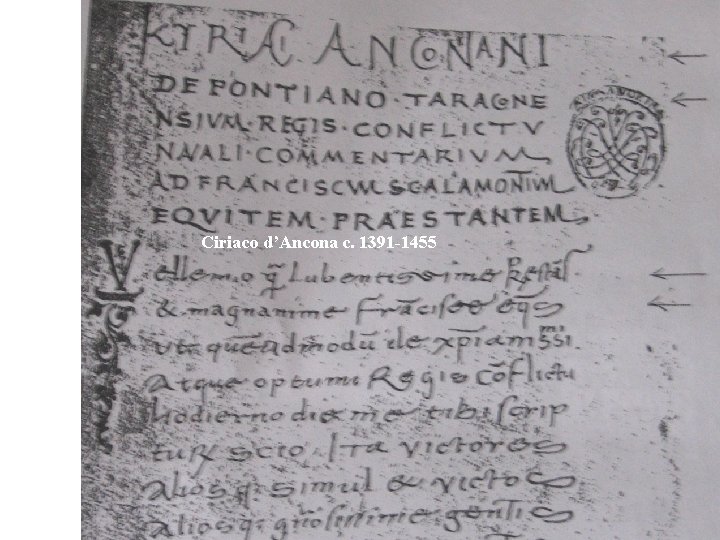 KYRIAC ANCONANI
DE PONTIANO · TARACONE
NSIVM · REGIS · CONFLICTV
NAVALI · COMMENTARIVM
AD FRANCISCVM SCALAMONTIVM
EQVITEM · PRAESTANTEM
Ciriaco d’Ancona c. 1391-1455
Vellem o q̄ lubentissime
& magnanime Frācisce eq̄s
ut quēadmodū ile xp̄ianissi
Atque optumi Regis Cōflictu
hodierno die me tibi scrip
turū scio, Ita victores
Alios q; simul & victos
aliosq; gentis